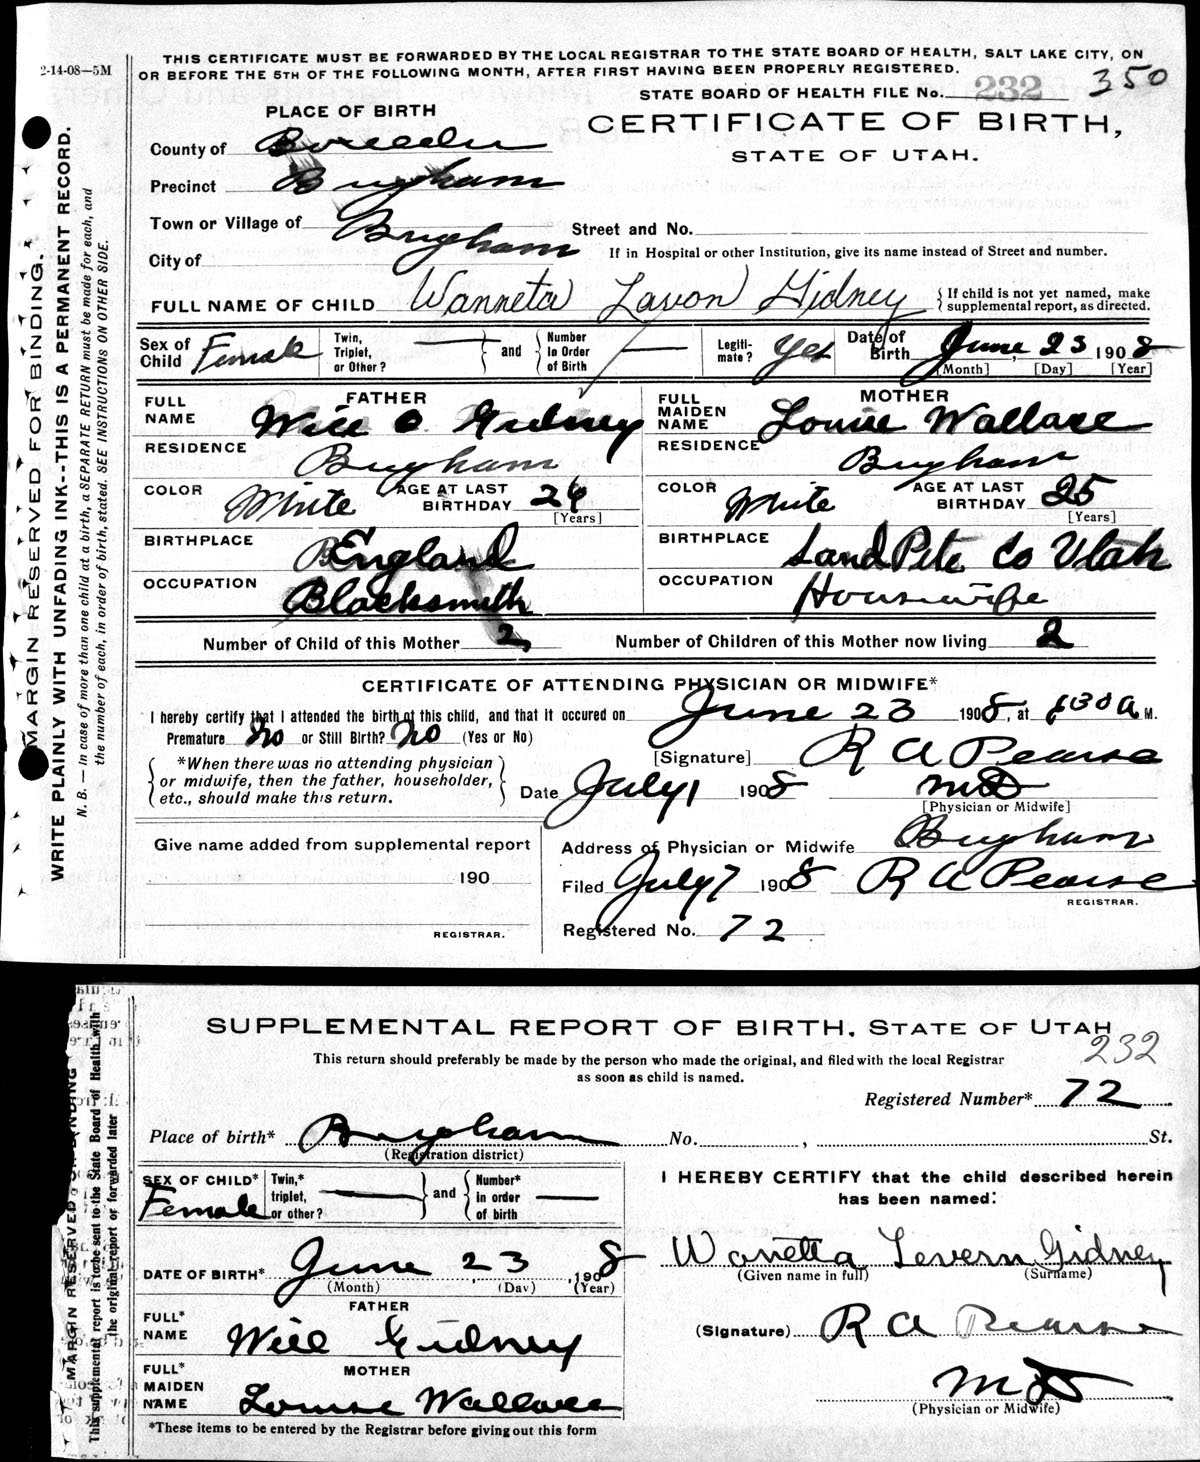 2-14-08—5M
THIS CERTIFICATE MUST BE FORWARDED BY THE LOCAL REGISTRAR TO THE STATE BOARD OF HEALTH, SALT LAKE CITY, ON
OR BEFORE THE 5TH OF THE FOLLOWING MONTH, AFTER FIRST HAVING BEEN PROPERLY REGISTERED.
STATE BOARD OF HEALTH FILE No. 232 350
PLACE OF BIRTH
CERTIFICATE OF BIRTH,
STATE OF UTAH.
County of Boxelder
Precinct Brigham
Town or Village of Brigham Street and No.
City of If in Hospital or other Institution, give its name instead of Street and number.
FULL NAME OF CHILD Wanneta Lavon Gidney { If child is not yet named, make supplemental report, as directed.
Sex of Child Female Twin, Triplet, or Other? } and { Number In Order of Birth Legiti-mate? Yes Date of Birth June 23 1908
[Month] [Day] [Year]
FATHER MOTHER
FULL NAME Will O Gidney FULL MAIDEN NAME Louise Wallace
RESIDENCE Brigham RESIDENCE Brigham
COLOR White AGE AT LAST BIRTHDAY 26 [Years] COLOR White AGE AT LAST BIRTHDAY 25 [Years]
BIRTHPLACE England BIRTHPLACE SandPete Co Utah
OCCUPATION Blacksmith OCCUPATION Housewife
Number of Child of this Mother 2 Number of Children of this Mother now living 2
CERTIFICATE OF ATTENDING PHYSICIAN OR MIDWIFE*
I hereby certify that I attended the birth of this child, and that it occured on June 23 1908, at 130 a M.
Premature No or Still Birth? No (Yes or No) [Signature] R A Pearse
{ *When there was no attending physician or midwife, then the father, householder, etc., should make this return. } Date July 1 1908 MD
[Physician or Midwife]
Give name added from supplemental report Address of Physician or Midwife Brigham
190 Filed July 7 1908 R A Pearse
REGISTRAR.
REGISTRAR. Registered No. 72
MARGIN RESERVED FOR BINDING.
WRITE PLAINLY WITH UNFADING INK--THIS IS A PERMANENT RECORD.
N. B. — In case of more than one child at a birth, a SEPARATE RETURN must be made for each, and
the number of each, in order of birth, stated. SEE INSTRUCTIONS ON OTHER SIDE.
SUPPLEMENTAL REPORT OF BIRTH, STATE OF UTAH
232
This return should preferably be made by the person who made the original, and filed with the local Registrar
as soon as child is named.
Registered Number* 72
Place of birth* Brigham No. , St.
(Registration district)
SEX OF CHILD* Female Twin,* triplet, or other? } and { Number* in order of birth
I HEREBY CERTIFY that the child described herein
has been named:
DATE OF BIRTH* June 23, 1908
(Month) (Day) (Year)
Wonetta Levern Gidney
(Given name in full) (Surname)
FATHER
FULL* NAME Will Gidney
(Signature) R A Pearse
MOTHER
FULL* MAIDEN NAME Louise Wallace
MD
(Physician or Midwife)
*These items to be entered by the Registrar before giving out this form
MARGIN RESERVED BINDING
This supplemental report is to be sent to the State Board of Health with
the original report or forwarded later